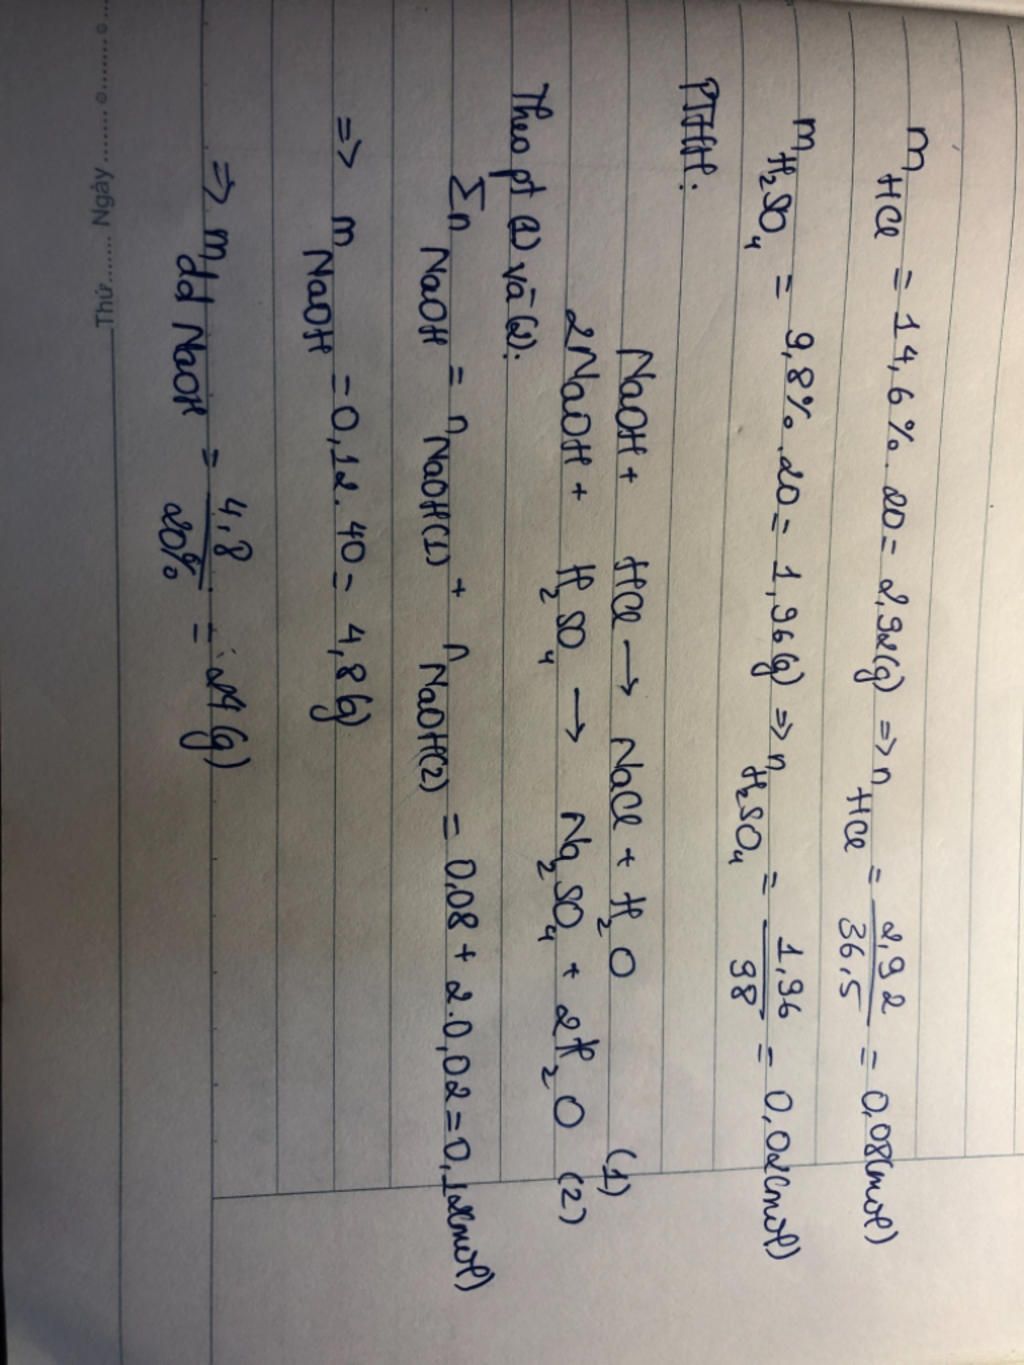 m HCl = 14,6%. 20 = 2,92(g) => n HCl = 2,92/36,5 = 0,08(mol)
m H₂SO₄ = 9,8%. 20 = 1,96(g) => n H₂SO₄ = 1,96/98 = 0,02(mol)
PTHH:
NaOH + HCl → NaCl + H₂O (1)
2NaOH + H₂SO₄ → Na₂SO₄ + 2H₂O (2)
Theo pt (1) và (2):
Σn NaOH = n NaOH(1) + n NaOH(2) = 0,08 + 2.0,02 = 0,12(mol)
=> m NaOH = 0,12. 40 = 4,8(g)
=> m dd NaOH = 4,8/20% = 24(g)
Thứ........ Ngày........